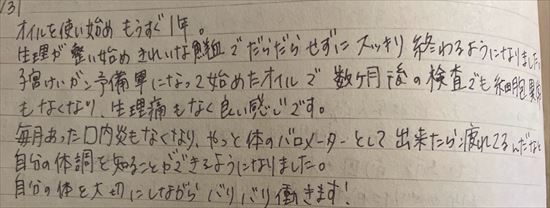 131
オイルを使い始めもうすぐ1年。
生理が整い始めきれいな鮮血でだらだらせずにスッキリ終わるようになりました。
子宮けいがん予備軍になって始めたオイルで数ヶ月後の検査でも細胞異常
もなくなり、生理痛もなく良い感じです。
毎月あった口内炎もなくなり、やっと体のバロメーターとして出来たら疲れてるんだなと
自分の体調を知ることができるようになりました。
自分の体を大切にしながらバリバリ働きます!